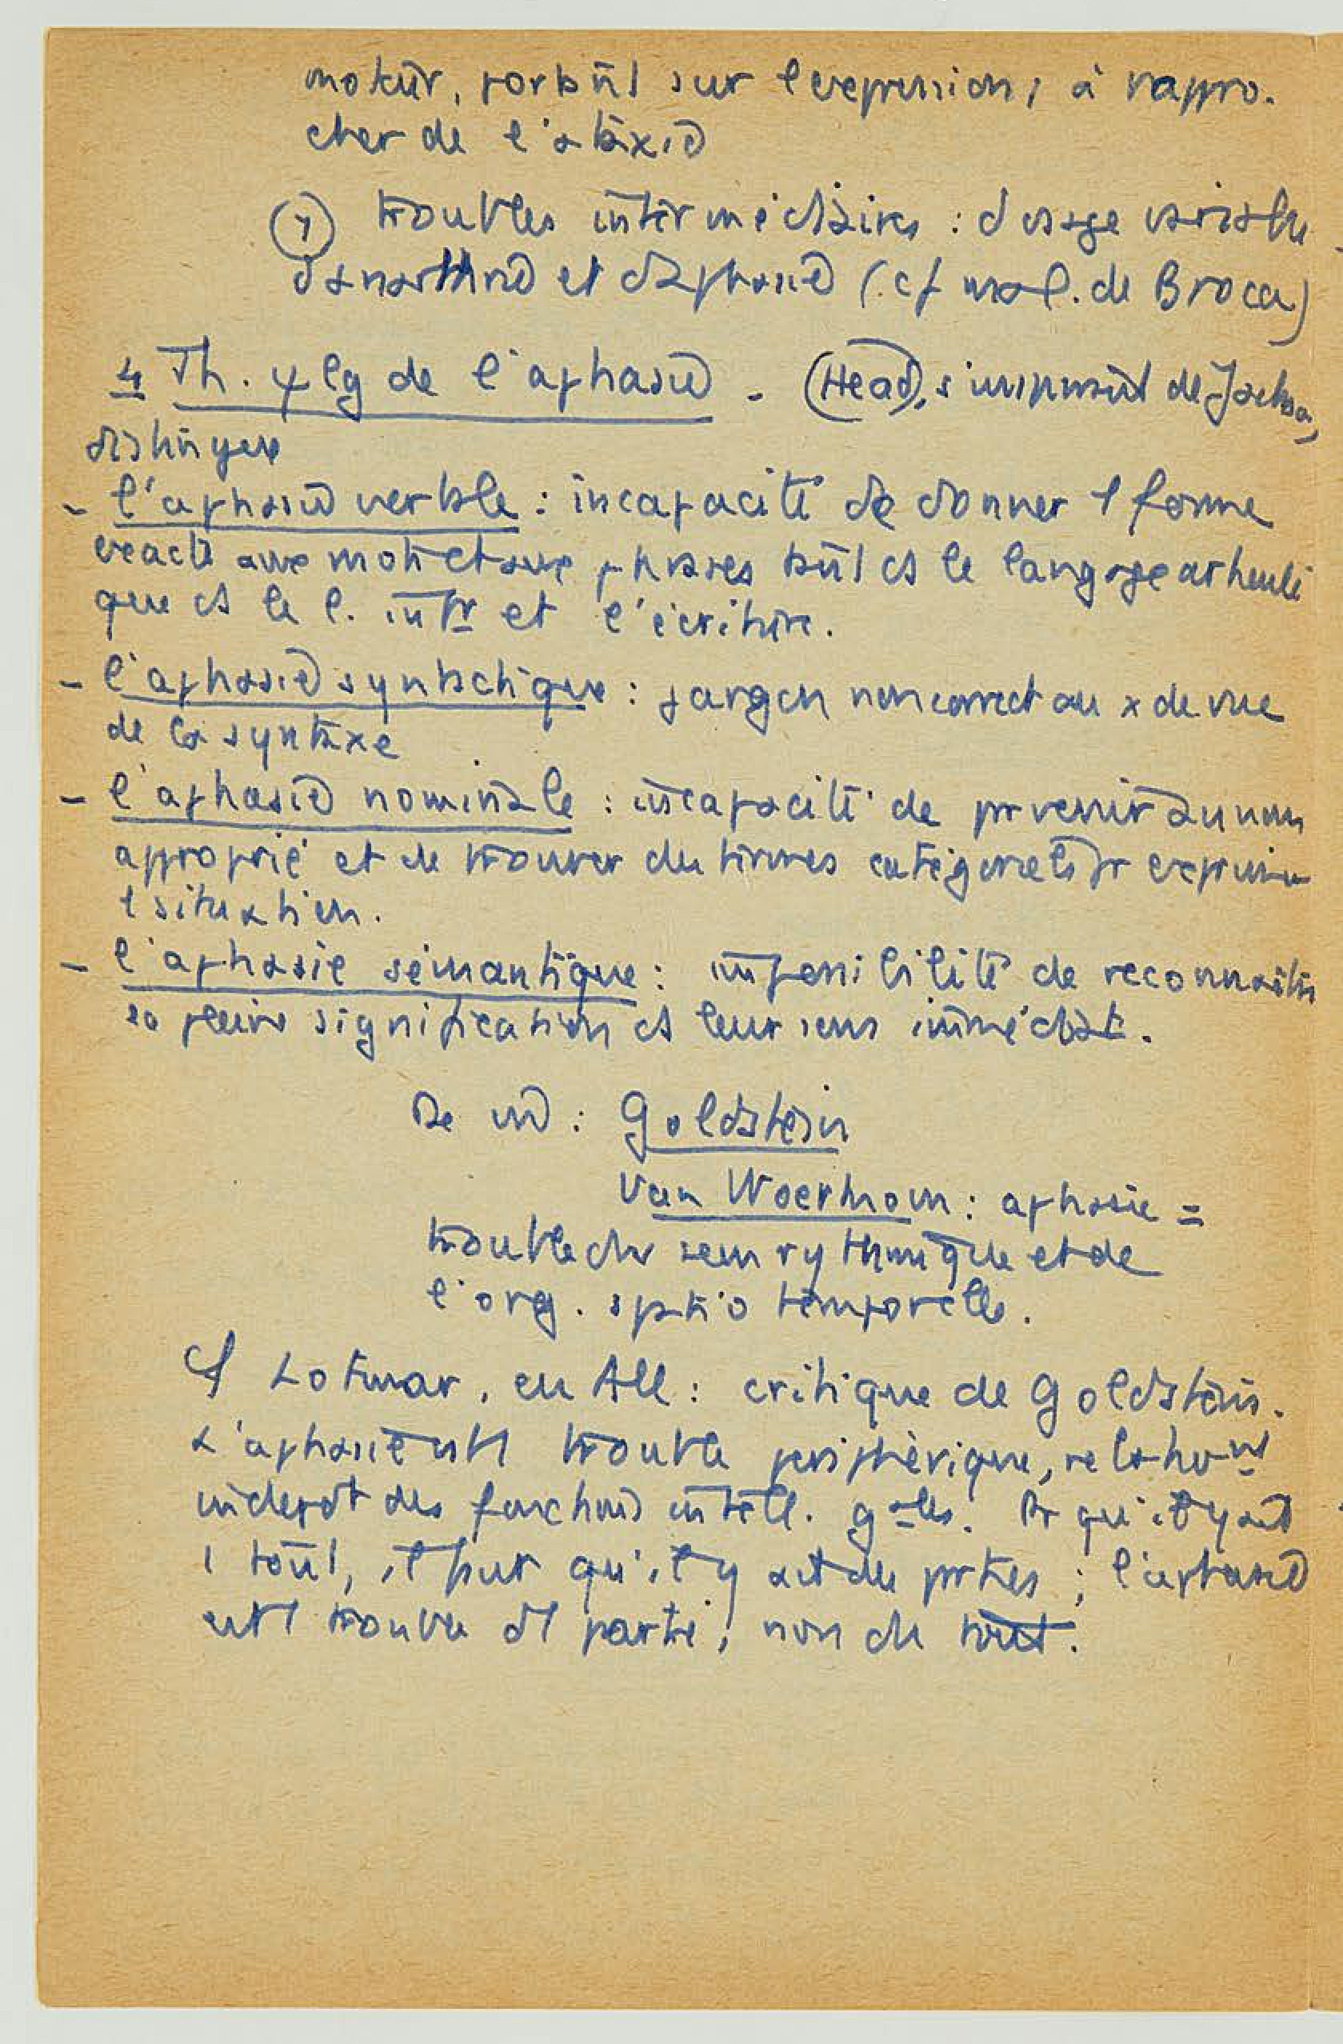 moteur, portant sur l'expression ; à rappro-
cher de l'ataxie
troubles intermédiaires : dosage variable
d'anarthrie et d'aphasie (cf mal. de Broca)
4 Th. ψ lg de l'aphasie - (Head), s'inspirant de Jackson,
distingue
- l'aphasie verbale : incapacité de donner 1 forme
exacte aux mots et aux phrases tant ds le langage articulé
que ds le l. intr et l'écriture.
- l'aphasie syntactique : jargon non correct au x de vue
de la syntaxe
- l'aphasie nominale : incapacité de parvenir au nom
approprié et de trouver des termes catégoriels pr exprimer
1 situation.
- l'aphasie sémantique : impossibilité de reconnaître
la pleine signification ds leur sens immédiat.
De m̂ : Goldstein
Van Woerkom : aphasie =
trouble du sens rythmique et de
l'org. spatio temporelle.
Cf Lotmar, en All : critique de Goldstein.
L'aphasie est 1 trouble périphérique, relativnt
indepdt des fonctions intell. gales. Pr qu'il y ait
1 tout, il faut qu'il y ait des parties ; l'aphasie
est 1 trouble d'1 partie, non du tout.